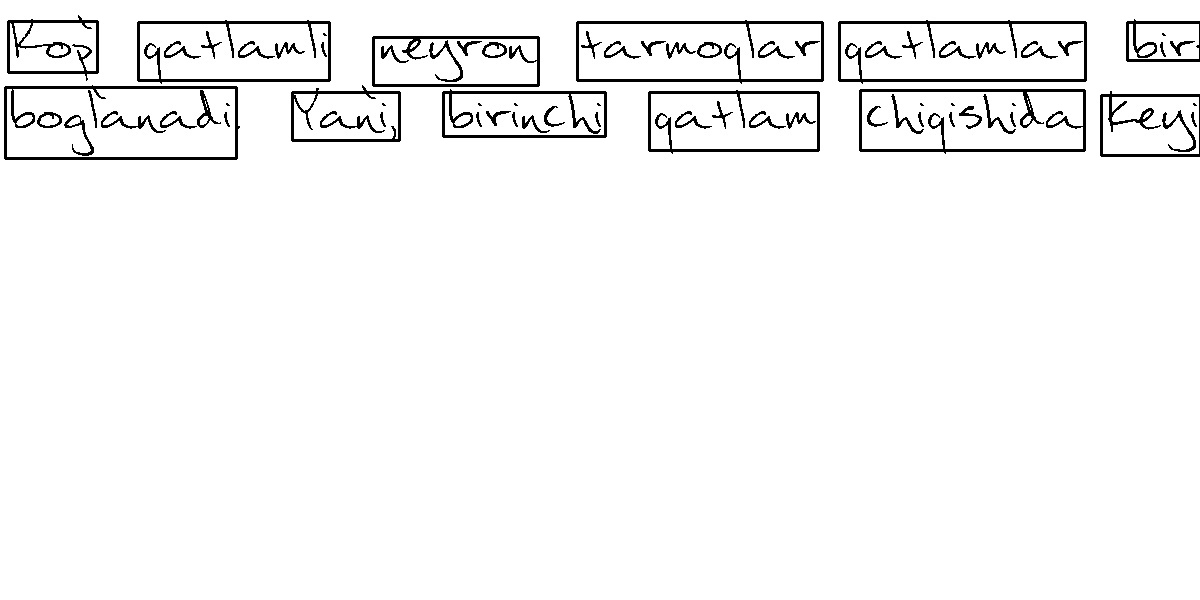 Ko'p qatlamli neyron tarmoqlar qatlamlar bir
bog'lanadi. Ya'ni, birinchi qatlam chiqishida keyi